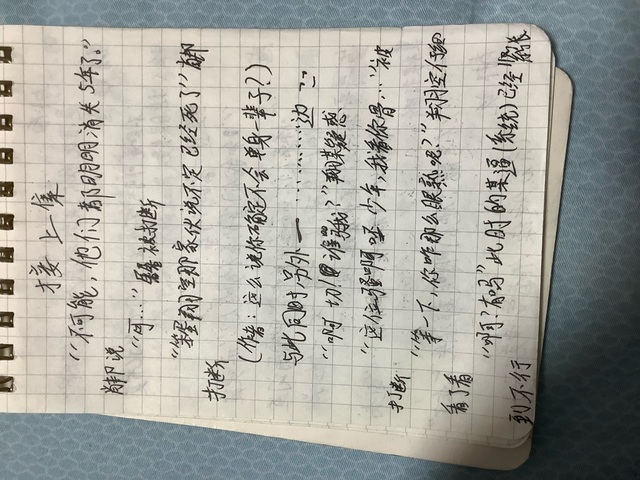 接上集
"不可能，他们都明明消失5年了。"
说
"可…"被打断
"翔空那家伙说不定已经死了"
打断
(作者:这么说你确定不会单身一辈子?)
与此同时另外一………边
"啊切!谁骂我?"翔某疑惑
"这位骚啊呸少年,我看你骨…"被
打断
"等一下,你咋那么眼熟呢?"翔空仔细
看了看
"啊?有吗"此时的某逼(系统)已经紧张
到不行